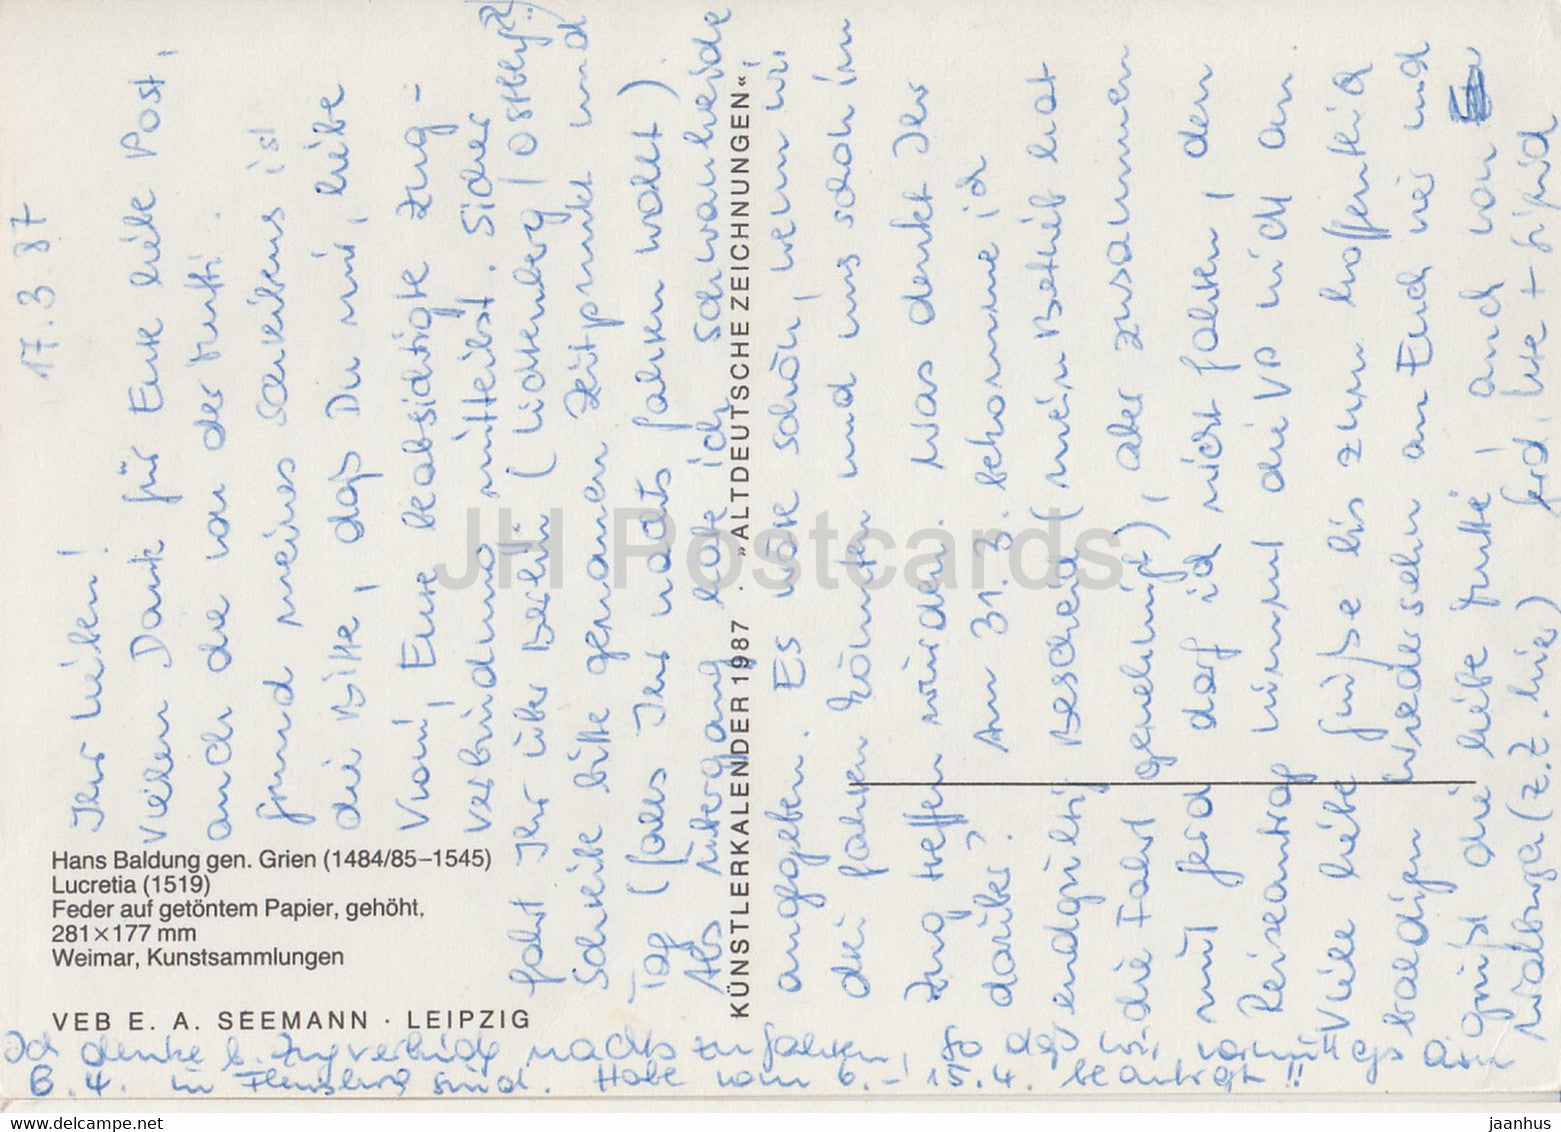 17.3.87
Ihr Lieben!
Vielen Dank für Eure liebe Post,
auch die von der Mutti.
Grund meines Schreibens ist
die Bitte, daß Du mir, liebe
Vroni, Eure beabsichtigte Zug-
verbindung mitteilst. Sicher
fahrt Ihr über Berlin (Lichtenberg / Ostbhf.?)
Schreibe bitte genauen Zeitpunkt und
Tag (falls Ihr nachts fahren wollt).
Als Übergang habe ich Schwanheide
angegeben. Es wäre schön, wenn wir
drei fahren könnten und uns schon im
Zug treffen würden. Was denkt Ihr
darüber? Am 31.3. bekomme ich
endgültig Bescheid (mein Betrieb hat
die Fahrt genehmigt), aber zusammen
mit Gerd darf ich nicht fahren, den
Reiseantrag nimmt die VP nicht an.
Viele liebe Grüße bis zum hoffentlich
baldigen Wiedersehn an Euch vier und
Grüßt die liebe Mutti, auch von
Walburga (z.Z. hier) Gerd, + Sigrid
Ich denke b. Zugverbindg nachts zu fahren, so daß wir vormittags am
6.4. in Flensburg sind. Habe vom 6.-15.4. beantragt!!
Hans Baldung gen. Grien (1484/85–1545)
Lucretia (1519)
Feder auf getöntem Papier, gehöht,
281×177 mm
Weimar, Kunstsammlungen
VEB E. A. SEEMANN · LEIPZIG
KÜNSTLERKALENDER 1987 · »ALTDEUTSCHE ZEICHNUNGEN«
JH Postcards
www.delcampe.net
jaanhus